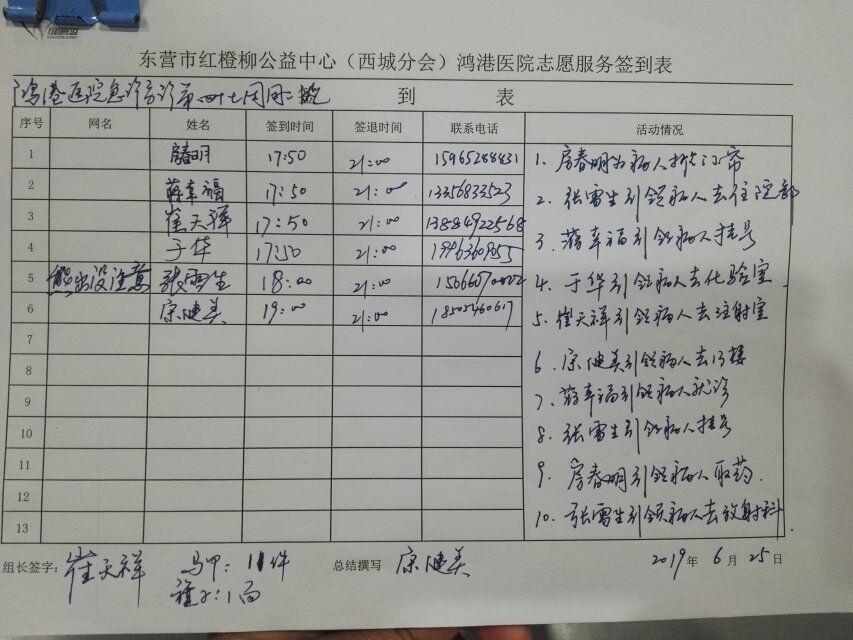 东营市红橙柳公益中心（西城分会）鸿港医院志愿服务签到表
鸿港医院急诊分诊第四十七周周二晚 到 表
序号 网名 姓名 签到时间 签退时间 联系电话 活动情况
1 房春明 17:50 21:00 15965288831
2 蒋幸福 17:50 21:00 13356833523
3 崔天祥 17:50 21:00 13884922568
4 于华 17:50 21:00
5 熊出没注意 张雷生 18:00 21:00
6 宗健美 19:00 21:00 18505460617
7
8
9
10
11
12
13
1. 房春明为病人掀门帘
2. 张雷生引领病人去住院部
3. 蒋幸福引领病人挂号
4. 于华引领病人去化验室
5. 崔天祥引领病人去注射室
6. 宗健美引领病人去13楼
7. 蒋幸福引领病人就诊
8. 张雷生引领病人挂号
9. 房春明引领病人取药.
10. 张雷生引领病人去放射科
组长签字： 崔天祥 马甲：11件 总结撰写 宗健美 2019 年 6 月 25 日
旗子：1面